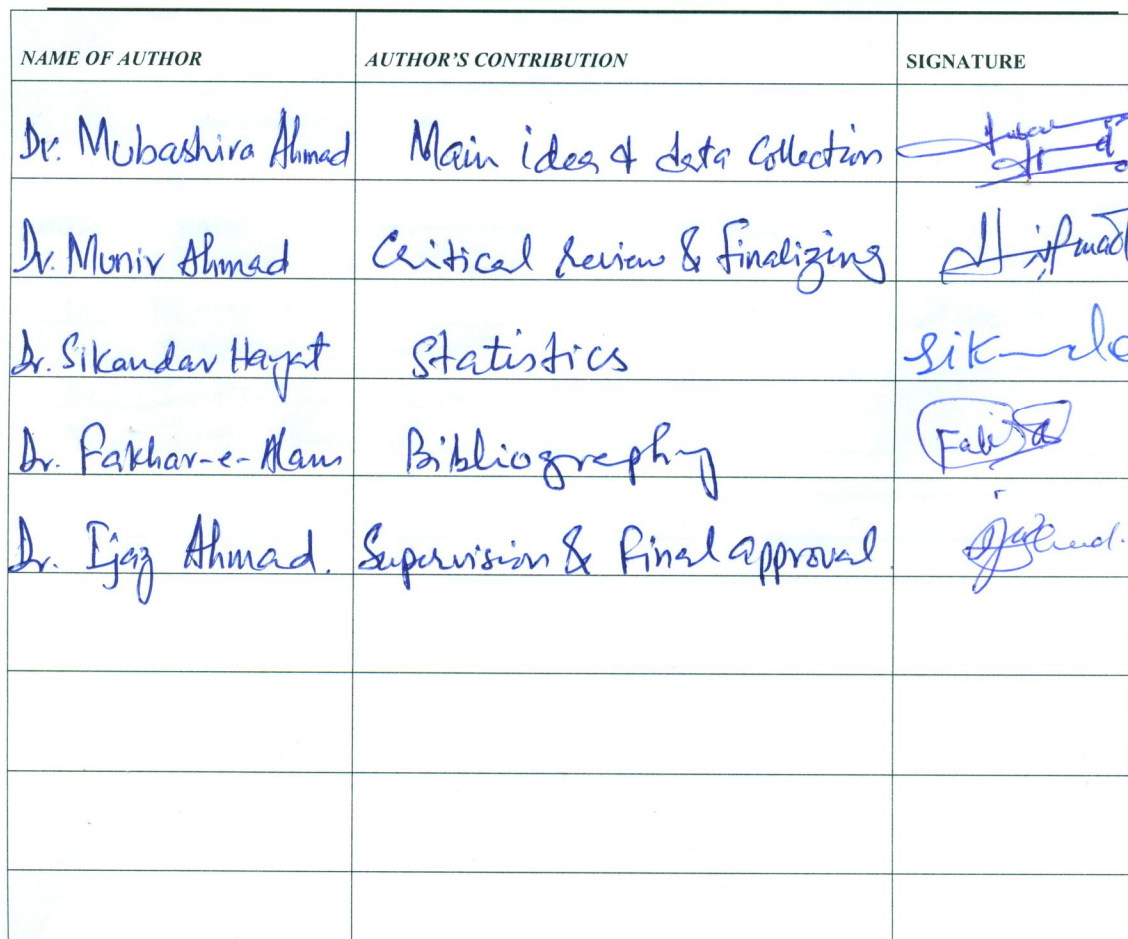 NAME OF AUTHOR AUTHOR'S CONTRIBUTION SIGNATURE
Dr. Mubashira Ahmad Main idea & data Collection
Dr. Munir Ahmad Critical Review & finalizing
Dr. Sikandar Hayat Statistics
Dr. Fakhar-e-Alam Bibliography
Dr. Ijaz Ahmad. Supervision & Final approval.